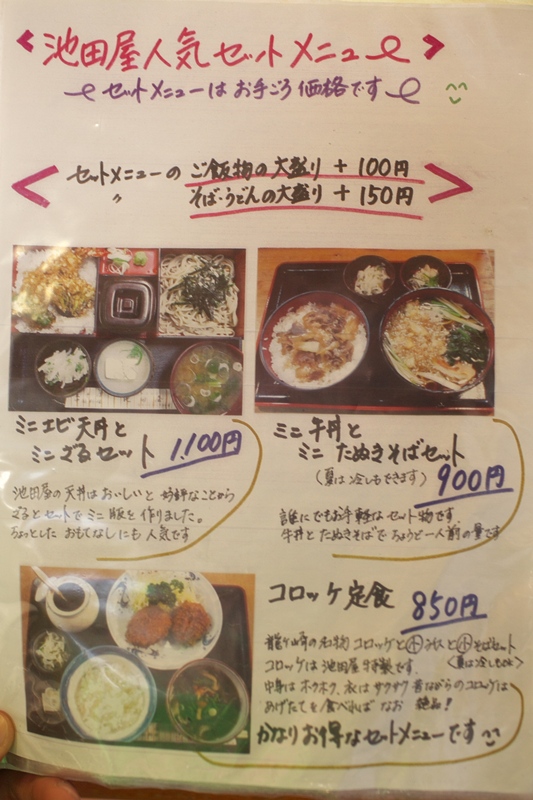 池田屋人気セットメニュー
セットメニューは お手ごろ 価格です
セットメニューの ご飯物の大盛り + 100円
〃 そば・うどんの大盛り + 150円
ミニエビ天丼と
ミニざるセット 1,100円
池田屋の天丼はおいしいと 好評なことから
ざるとセットで ミニ版を作りました。
ちょっとした おもてなしにも 人気です
ミニ牛丼と
ミニ たぬきそばセット
(夏は冷しもできます) 900円
誰にでもお手軽な セット物です
牛丼と たぬきそばで ちょうど一人前の量です
コロッケ定食 850円
龍ヶ崎の名物 コロッケと 小 と 小 そばセット
コロッケは 池田屋 特製です. (夏は冷しもOK)
中身は ホクホク、衣は サクサク 昔ながらのコロッケは
あげたてを 食べれば なお 絶品!
かなりお得なセットメニューです